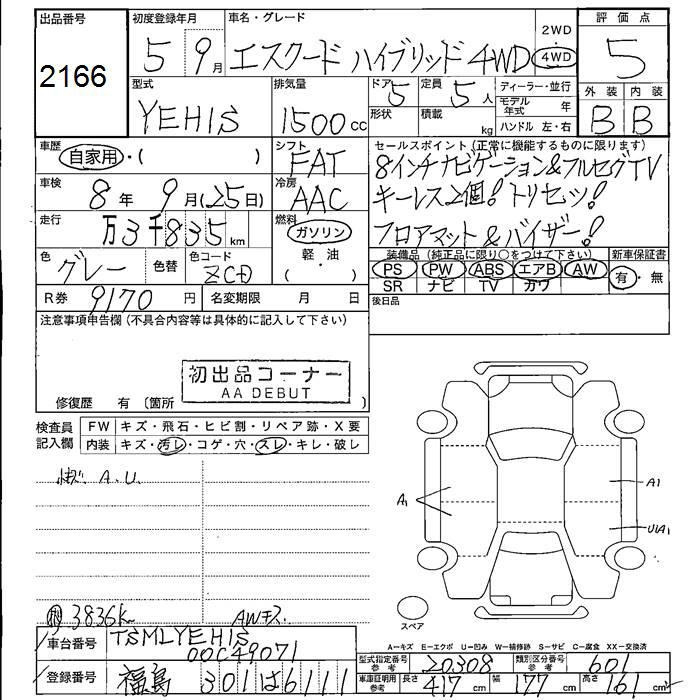 出品番号 初度登録年月 車名・グレード 2WD 評価点
2166 5 9月 エスクード ハイブリッド 4WD 4WD 5
型式 排気量 ドア 定員 ディーラー・並行 外装 内装
YEH1S 1500cc 5 5人 モデル年式 年 B B
形状 積載 kg ハンドル 左・右
車歴 シフト セールスポイント(正常に機能するものに限ります)
自家用・( ) FAT 8インチナビゲーション&フルセグTV
車検 冷房 キーレス2個!トリセツ!
8年 9月(25日) AAC フロアマット&バイザー!
走行 燃料
万3千835km ガソリン
色 色替 色コード 軽・油 装備品(純正品に限り○をつけて下さい) 新車保証書
グレー ZCD ( ) PS PW ABS エアB AW 有・無
SR ナビ TV カワ
R券 9170円 名変期限 月 日 後日品
注意事項申告欄(不具合内容等は具体的に記入して下さい)
初出品コーナー
AA DEBUT
修復歴 有〔箇所 〕
検査員記入欄 FW キズ・飛石・ヒビ割・リペア跡・X要
内装 キズ・汚レ・コゲ・穴・スレ・キレ・破レ
小キズ A.U.
A1
A1
U1A1
3836k AWキズ
スペア
A―キズ E―エクボ U―凹み W―補修跡 S―サビ C―腐食 XX―交換済
車台番号 TSMLYEH1S
00C49071
型式指定番号参考 20308 類別区分番号参考 601
登録番号 福島 301は6111
車庫証明用参考 長さ 417cm 幅 177cm 高さ 161cm